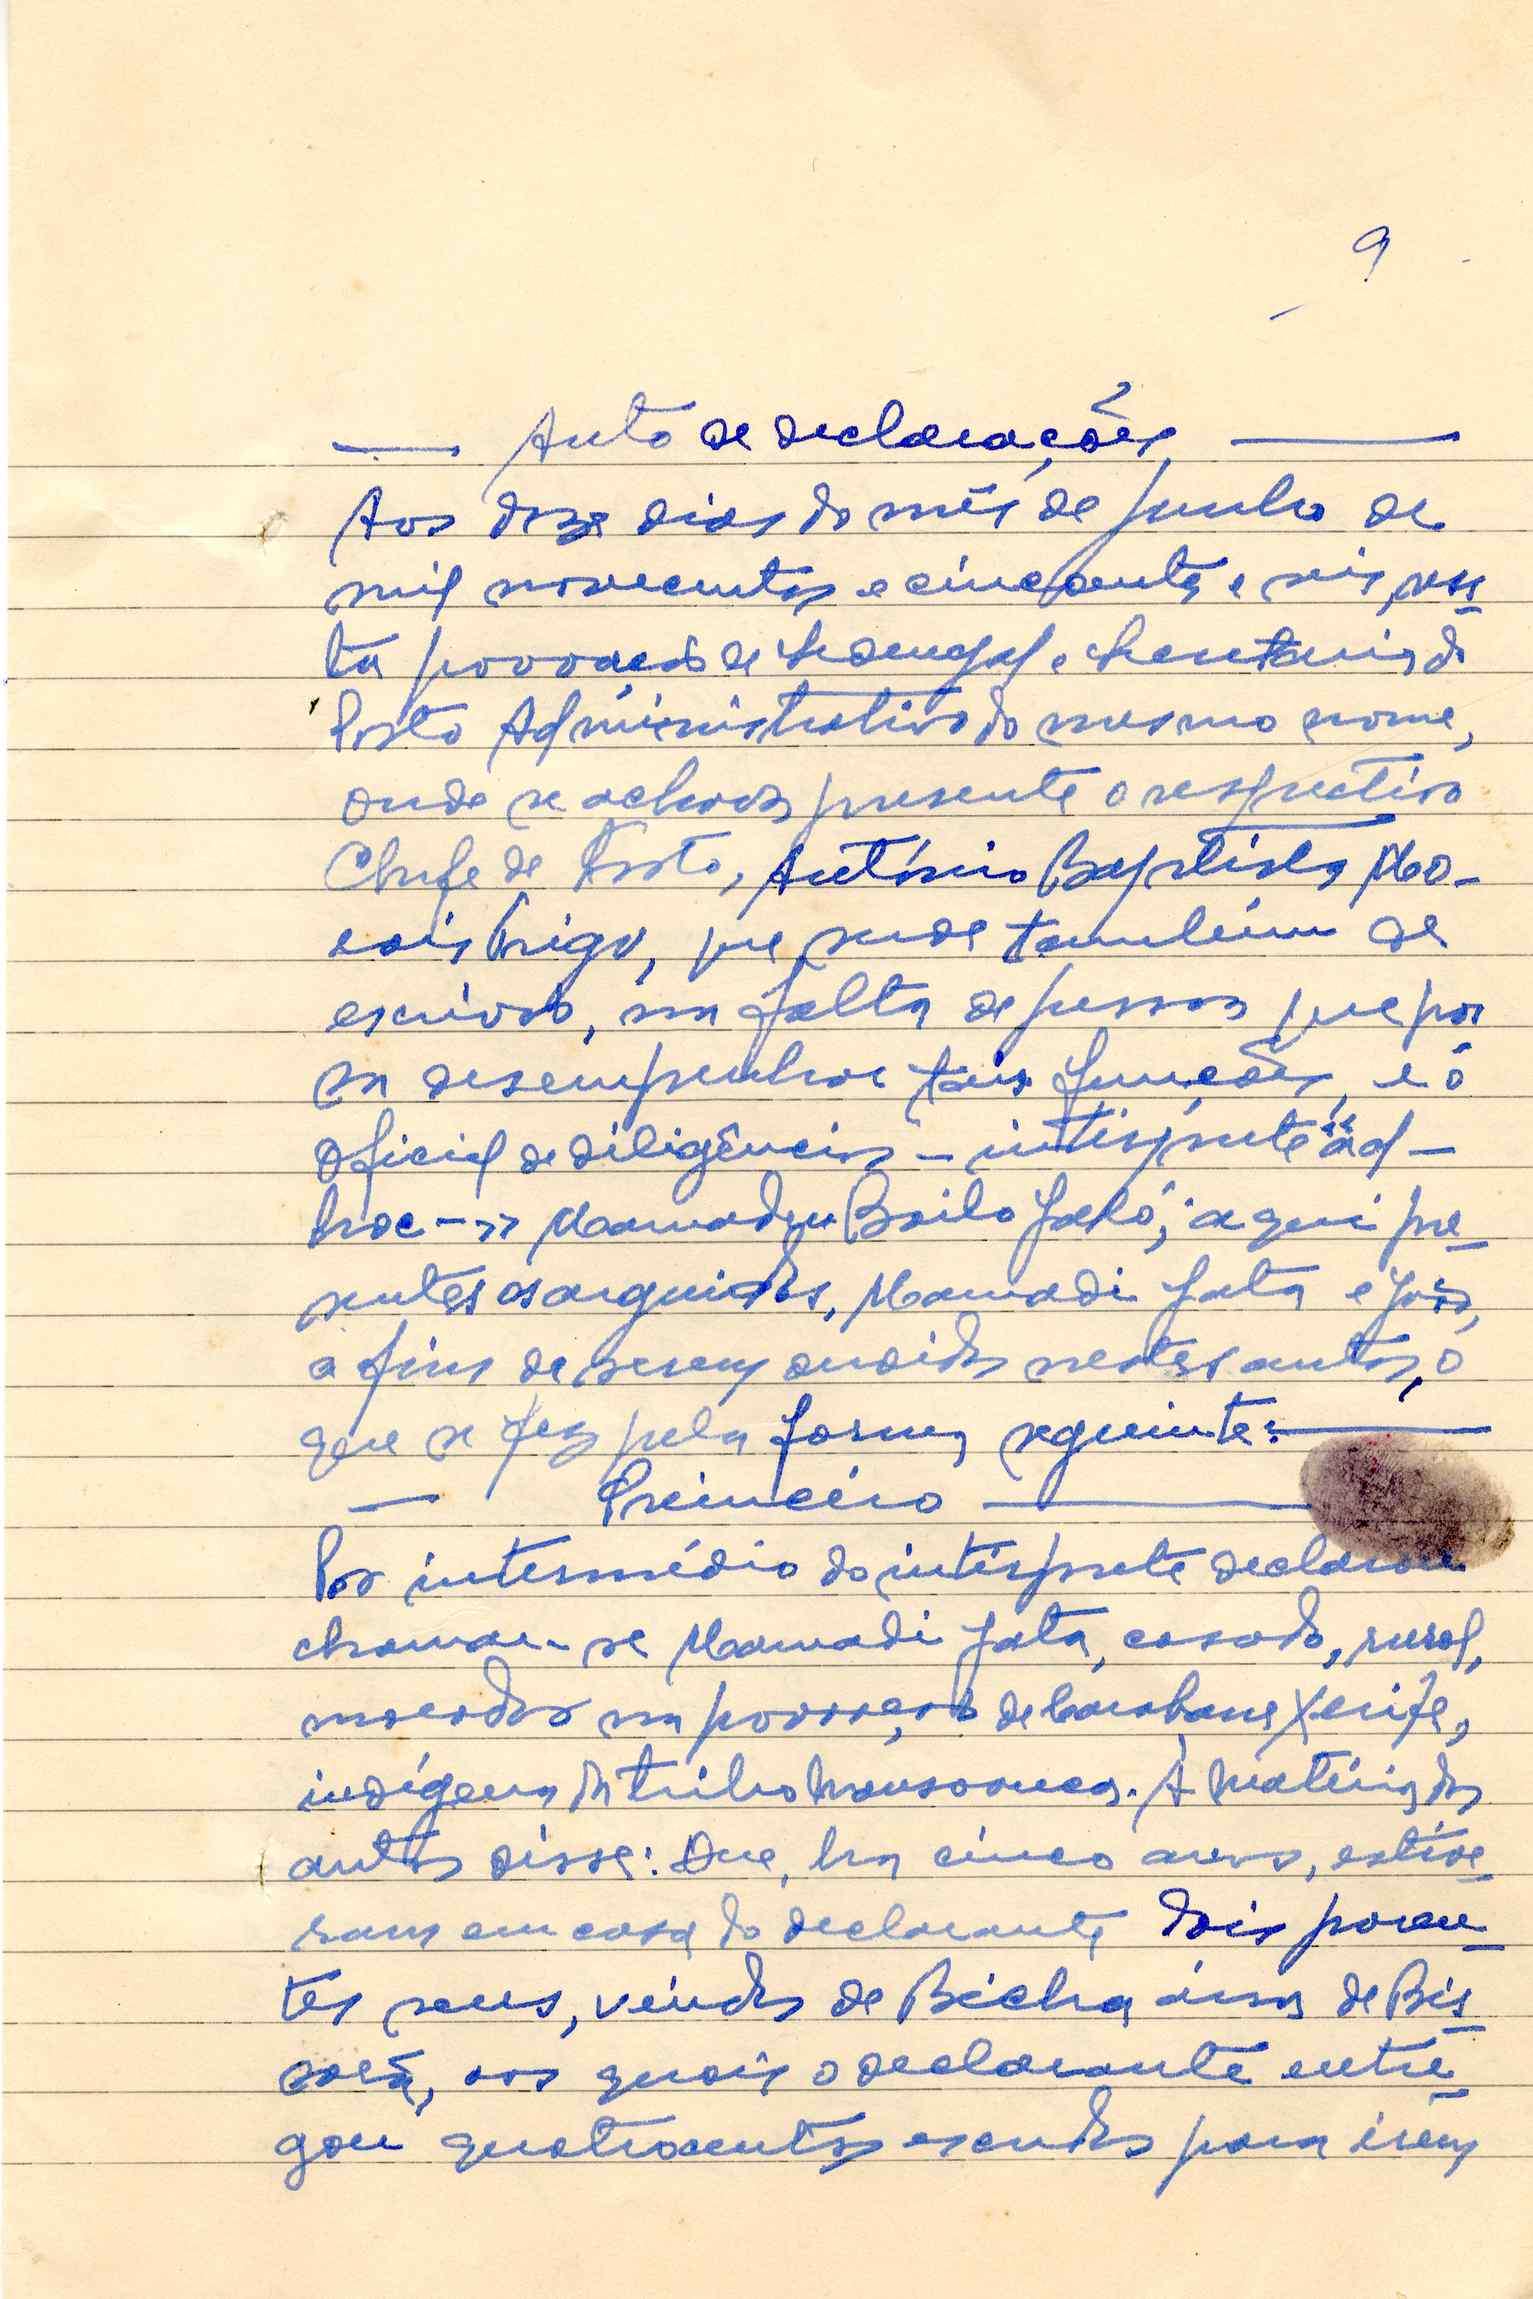 9
— Auto de declarações —
Aos doze dias do mês de Junho de
mil novecentos e cincoenta e seis, nes-
ta povoação de e Secretaria do
Posto Administrativo do mesmo nome,
onde se achava presente o respectivo
Chefe de Posto, António Baptista Mo-
rais Trigo, que serve também de
escrivão, na falta de pessoa que pos-
sa desempenhar tais funções, e o
oficial de diligências - intérprete "ad-
hoc-" Mamadu Bailo Jaló; aqui pre-
sentes os arguidos, Mamadi Jata e João,
a fim de serem ouvidos nestes autos, o
que se fez pela forma seguinte: —
— Primeiro —
Por intermédio do intérprete declarou
chamar-se Mamadi Jata, casado, rural,
morador na povoação de Xerife,
indígena da tribo mansoanca. À matéria dos
autos disse: Que, ha cinco anos, estive-
ram em casa do declarante dois paren-
tes seus, vindos de área de Bis-
sorã, aos quais o declarante entre-
gou quatrocentos escudos para irem